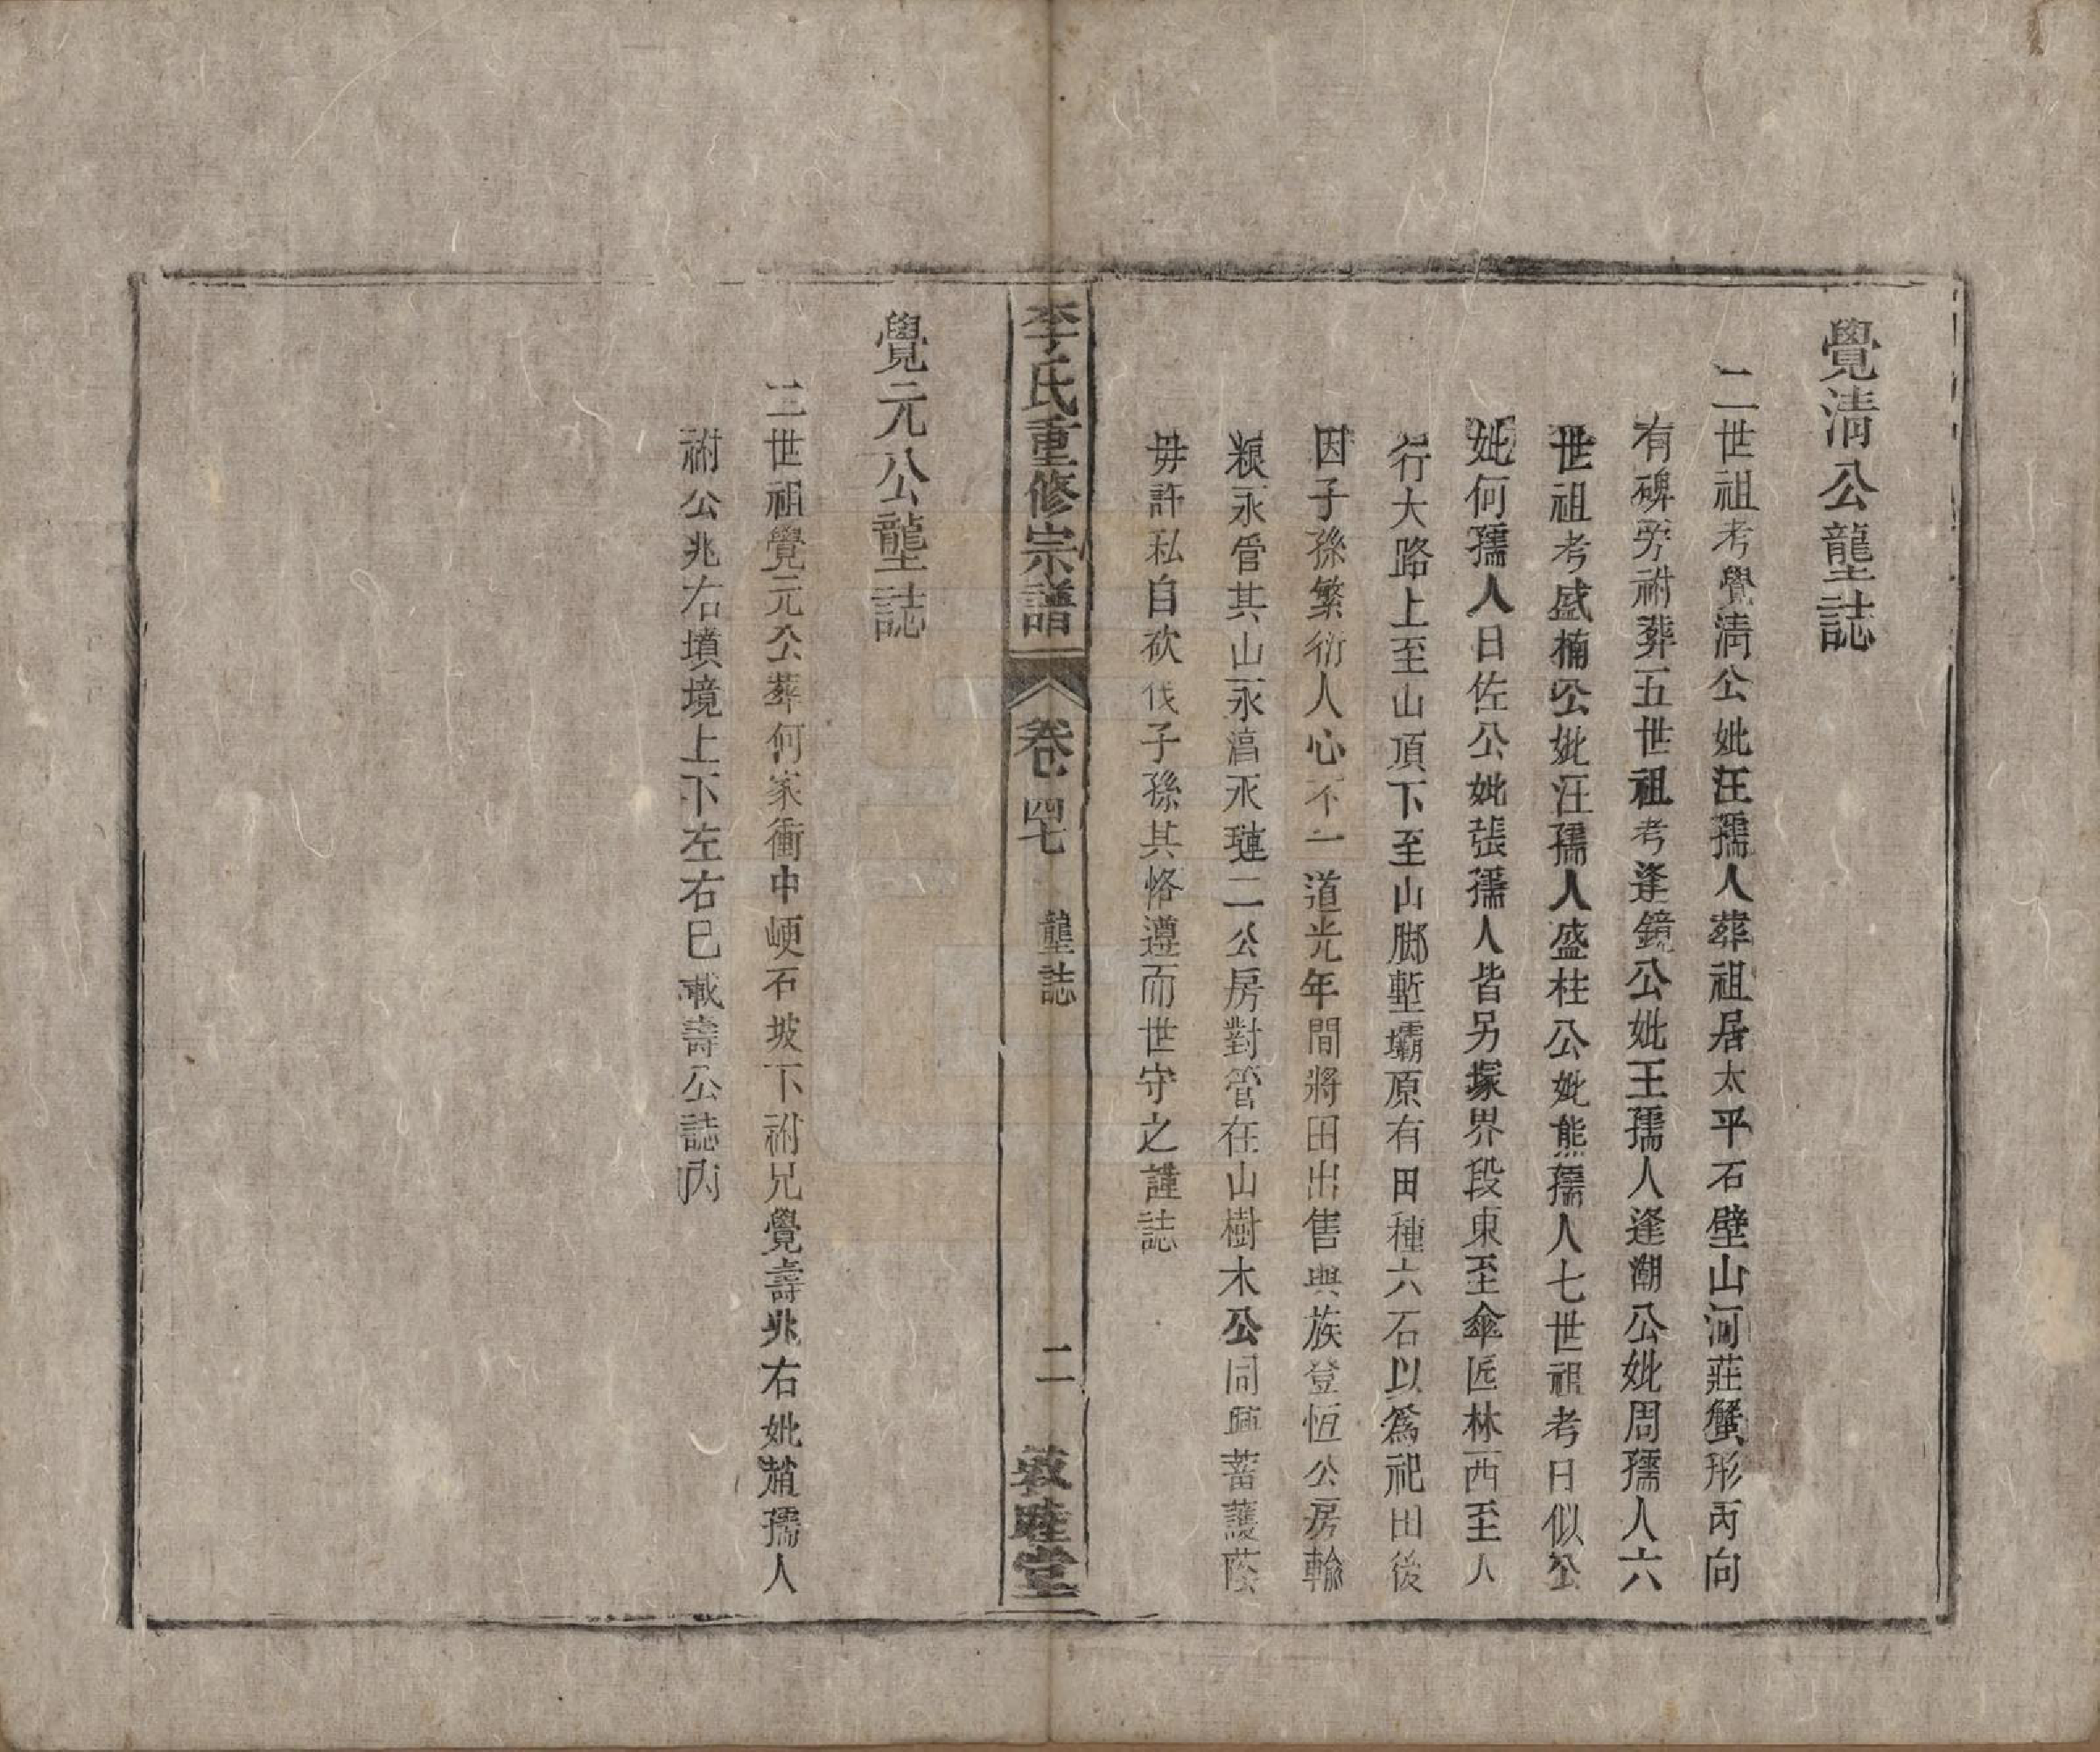 覺清公壟誌
二世祖考覺清公妣汪孺人葬祖居太平石壁山河莊蟹形丙向
有碑旁祔葬五世祖考逢鏡公妣王孺人逢潮公妣周孺人六
世祖考盛楠公妣汪孺人盛柱公妣熊孺人七世祖考日似公
妣何孺人日佐公妣張孺人皆另塚界段東至傘匠林西至人
行大路上至山頂下至山脚塹壩原有田種六石以為祀田後
因子孫繁衍人心不一道光年間將田出售與族登恒公房輸
粮永管其山永濇永璉二公房對管在山樹木公同興蓄護蔭
毋許私自砍伐子孫其恪遵而世守之謹誌
李氏重修宗譜
卷四七
壟誌
二
敦睦堂
覺元公壟誌
二世祖覺元公葬何家衝中崾石坡下祔兄覺壽兆右妣蕭孺人
祔公兆右墳境上下左右已載壽公誌內